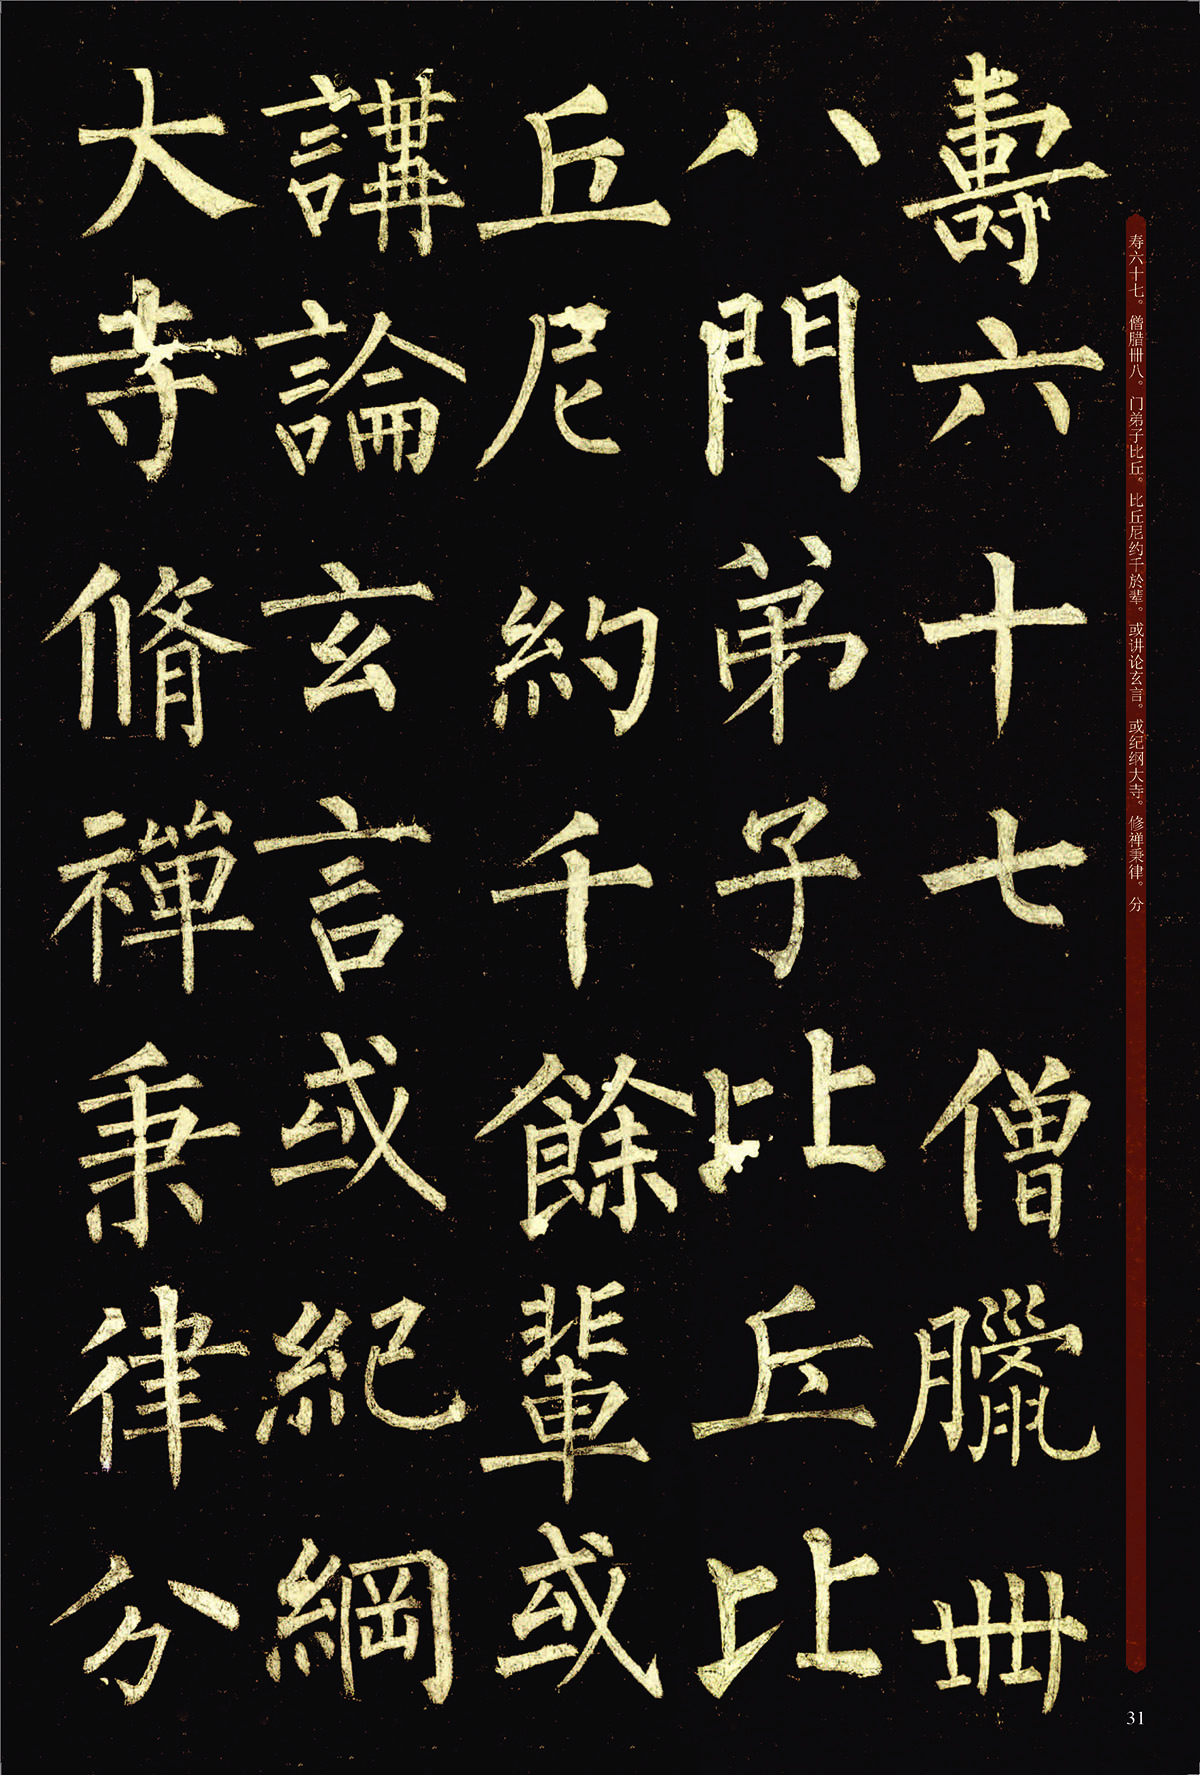 壽六十七僧臘卌
八門弟子比丘比
丘尼約千餘輩或
講論玄言或紀綱
大寺脩禪秉律分
寿六十七。僧腊卌八。门弟子比丘。比丘尼约千於辈。或讲论玄言。或纪纲大寺。修禅秉律。分
31